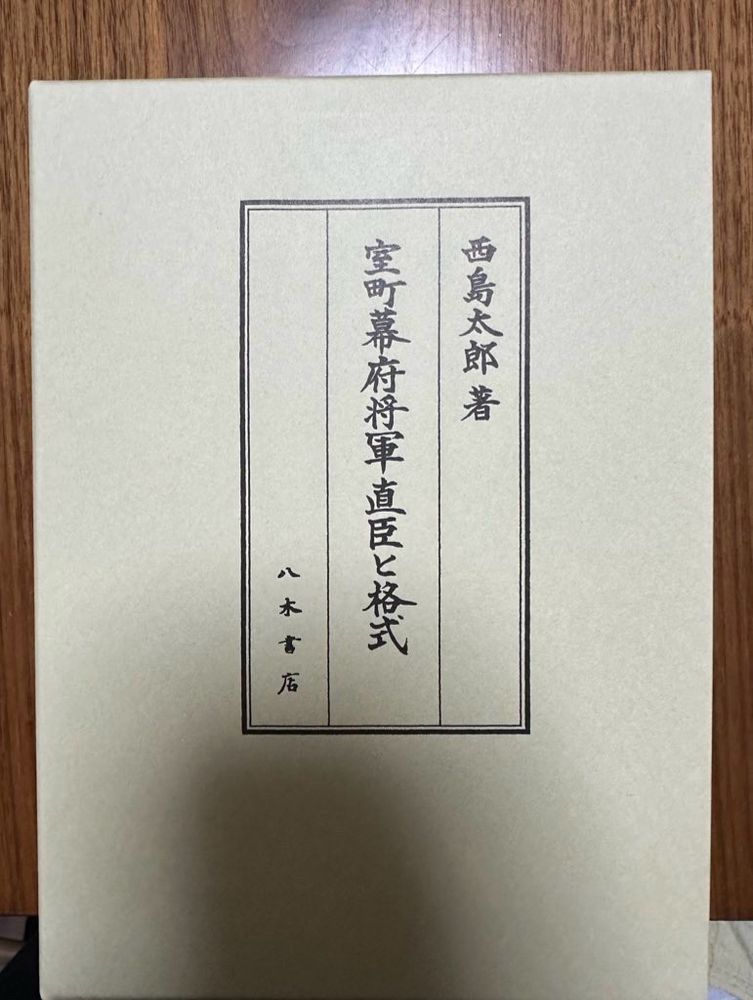 西島太郎 著
室町幕府将軍直臣と格式
八木書店